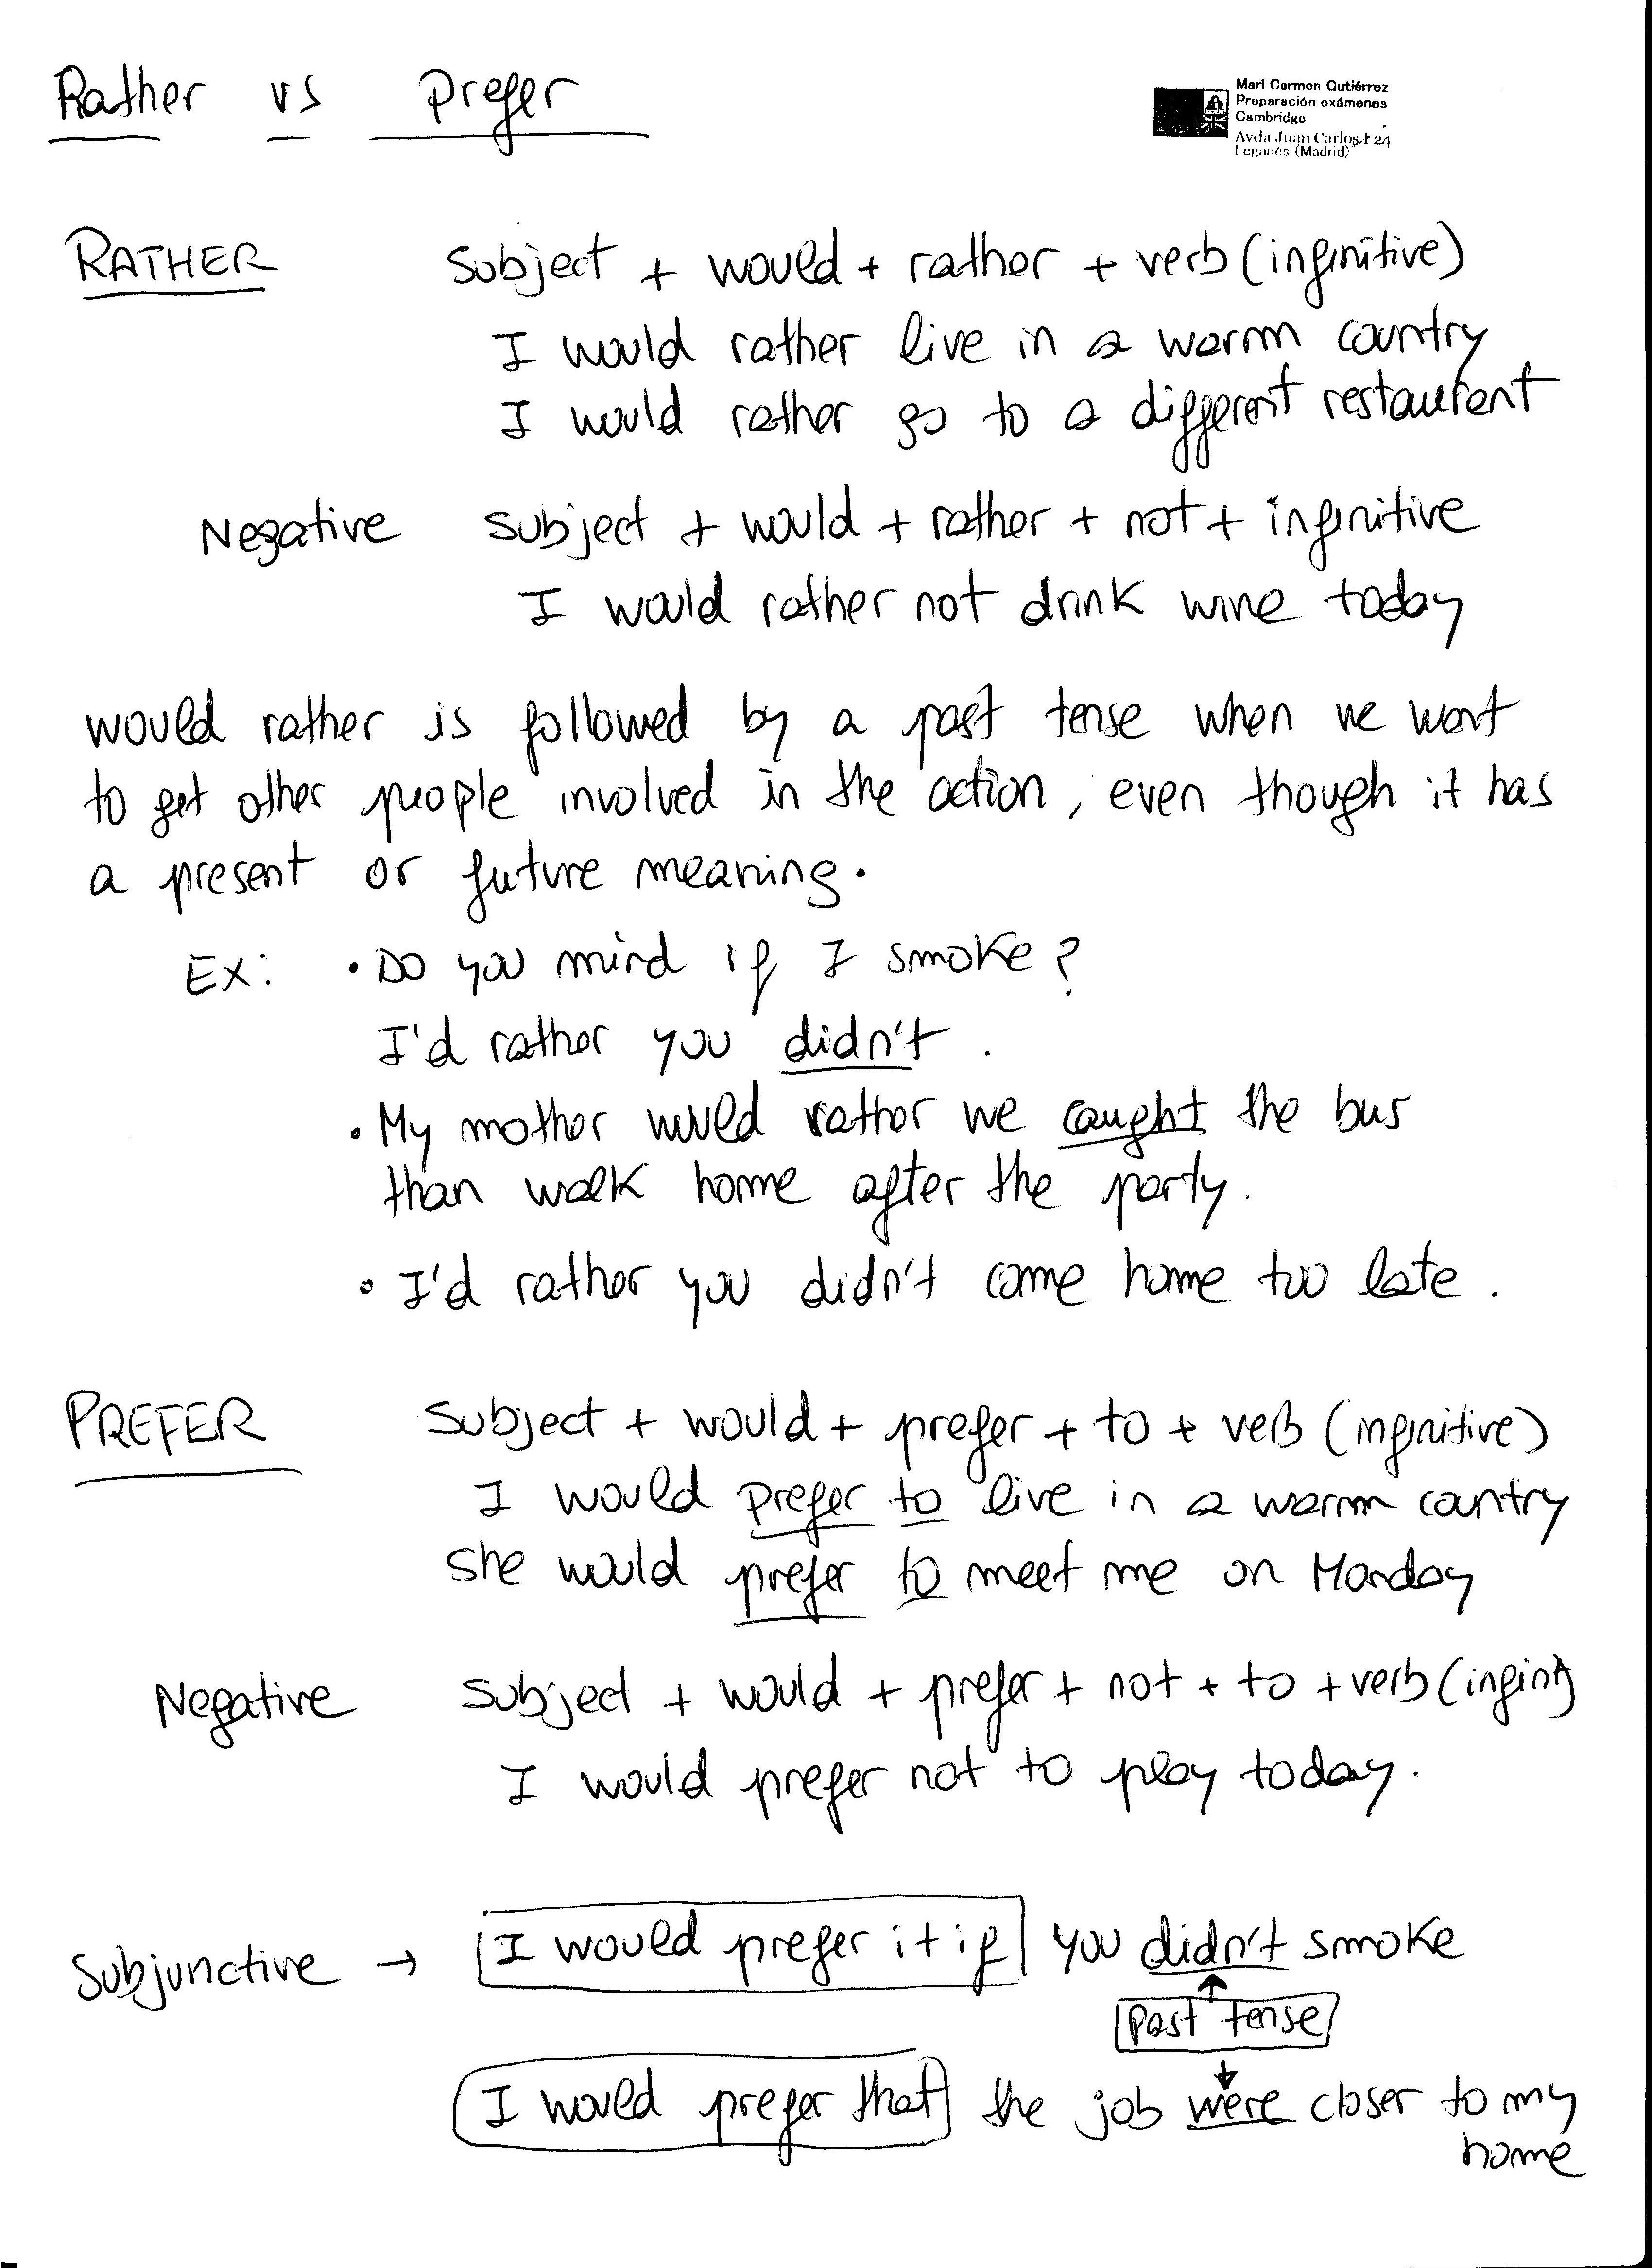 Rather vs prefer
Mari Carmen Gutiérrez
Preparación exámenes
Cambridge
Avda Juan Carlos I 24
Leganés (Madrid)
RATHER subject + would + rather + verb (infinitive)
I would rather live in a warm country
I would rather go to a different restaurent
Negative subject + would + rather + not + infinitive
I would rather not drink wine today
would rather is followed by a past tense when we want
to get other people involved in the action, even though it has
a present or future meaning.
Ex: • Do you mind if I smoke?
I'd rather you didn't.
• My mother would rather we caught the bus
than walk home after the party.
• I'd rather you didn't come home too late.
PREFER subject + would + prefer + to + verb (infinitive)
I would prefer to live in a warm country
she would prefer to meet me on Monday
Negative subject + would + prefer + not + to + verb (infinit)
I would prefer not to play today.
Subjunctive → I would prefer it if you didn't smoke
Past tense
I would prefer that the job were closer to my
home